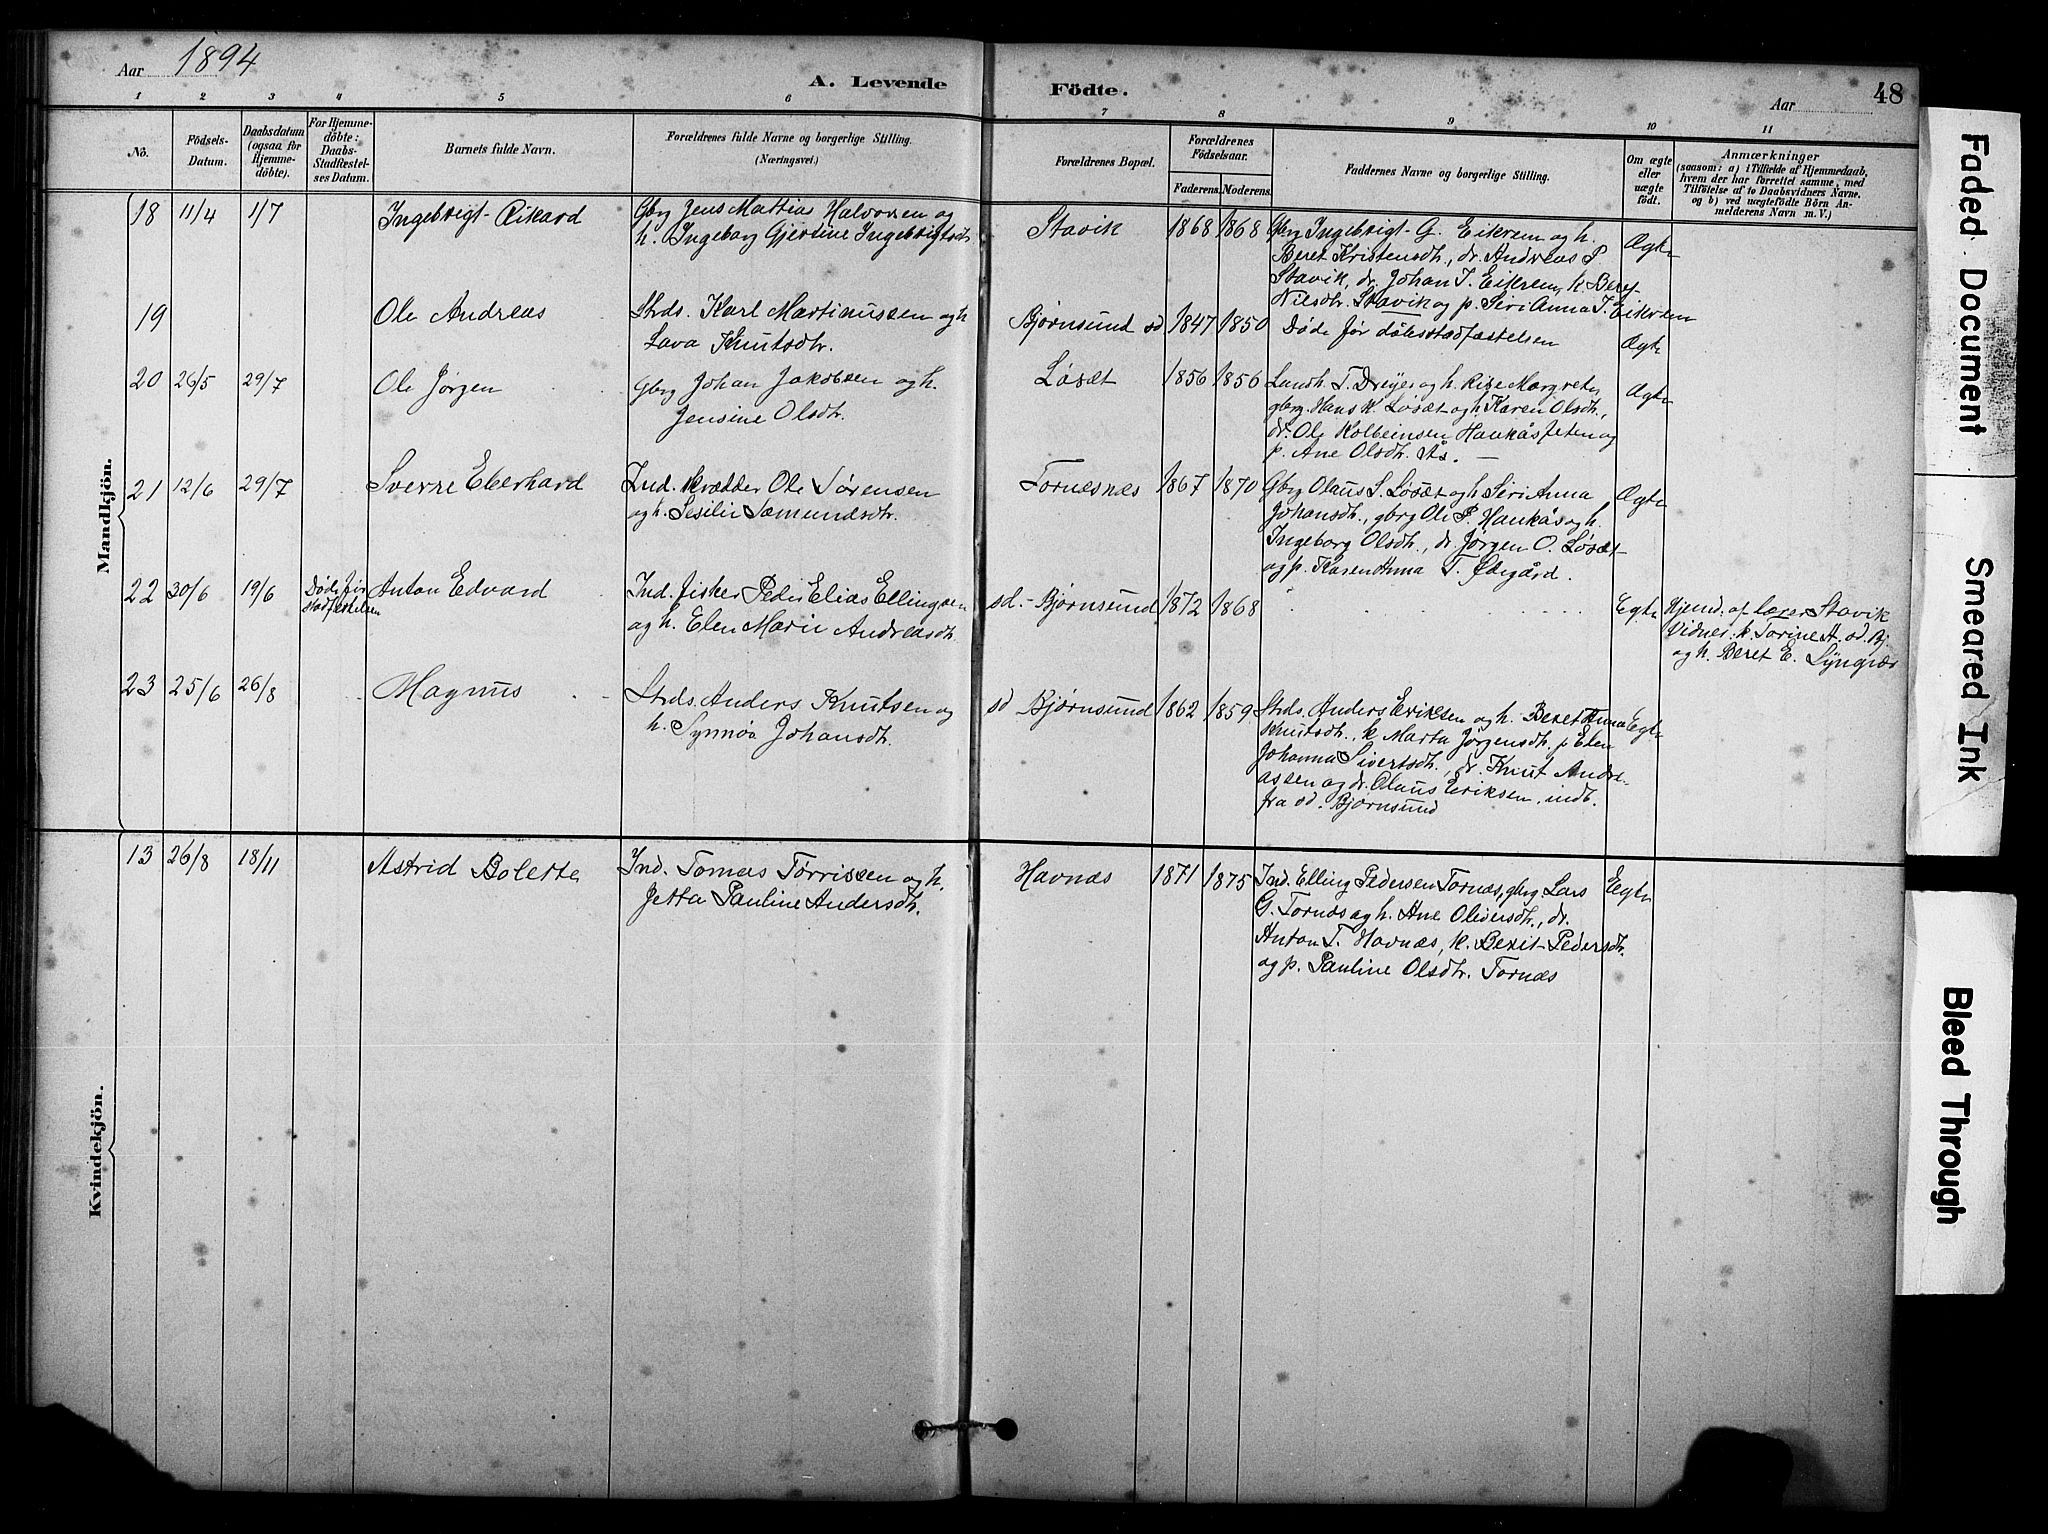 Aar 1894
A. Levende Födte.
Aar 48
1 2 3 4 5 6 7 8 9 10 11
No.
Födsels-
Datum.
Daabsdatum
(ogsaa for
Hjemme-
döbte).
For Hjemme-
döbte:
Daabs-
Stadfæstel-
ses Datum.
Barnets fulde Navn.
Forældrenes fulde Navne og borgerlige Stilling.
(Næringsvei.)
Forældrenes Bopæl.
Forældrenes
Födselsaar.
Faderens. Moderens.
Faddernes Navne og borgerlige Stilling.
Om ægte
eller
uægte
födt.
Anmærkninger
(saasom: a) i Tilfælde af Hjemmedaab,
hvem der har forrettet samme, med
Tilföielse af to Daabsvidners Navne.
og b) ved uægtefödte Börn An-
melderens Navn m. V.)
Mandkjön.
18 11/4 1/7 Ingebrigt Rikard
Gbrg Jens Mattias Halvorsen og
h. Ingeborg Gjertine Ingebrigtsdtr.
Stavik 1868 1868
Gbrg Ingebrigt G. Eikrem og h.
Beret Kristensdtr., dr. Andreas P.
Stavik, dr. Johan I. Eikrem, k. Beret
Nilsdtr. Stavik og p. Siri Anna I. Eikrem
Ægte
19 Ole Andreas
Strds. Karl Martinussen og h
Lava Knutsdtr.
Bjørnsund sd 1847 1850
Døde før dåbsstadfæstelsen
Ægte
20 26/5 29/7 Ole Jørgen
Gbrg Johan Jakobsen og h.
Jensine Olsdtr.
Løsæt 1856 1856
Landh. T. Dreyer og h. Rise Margrete,
gbrg. Hans K. Løsæt og h. Karen Olsdtr.,
dr. Ole Kolbeinsen Haukåsfeten og
p. Ane Olsdtr. Ås. —
Ægte
21 12/6 29/7 Sverre Eberhard
Ind. skrædder Ole Sørensen
og h. Sesilie Sæmundsdtr.
Tornæsnæs 1867 1870
Gbrg Olaus S. Løsæt og h. Siri Anna
Johansdtr., gbrg Ole P. Haukås og h.
Ingeborg Olsdtr., dr. Jørgen O. Løsæt
og p. Karen Anna T. Ødegård.
Ægte
22 30/6 19/6
Døde før
stadfæstelsen
Anton Edvard
Ind. fisker Peder Elias Ellingsen
og h. Elen Marie Andreasdtr.
sd. - Bjørnsund 1872 1868
Egte
Hjemd. af lærer Stavik
Vidner: k. Torine A. sd. Bj.
og h. Beret E. Lyngvær
23 25/6 26/8 Magnus
Strds. Anders Knutsen og
h. Synnøa Johansdtr.
sd Bjørnsund 1862 1859
Strds. Anders Eriksen og h. Beret Anna
Knutsdtr., k Marta Jørgensdtr. p Elen
Johanna Sivertsdtr., dr. Knut Andre-
assen og dr. Olaus Eriksen, indb.
fra sd. Bjørnsund
Egte
Kvindekjön.
13 26/8 18/11 Astrid Bolette
Ind. Tomas Tørrissen og h.
Jetta Pauline Andersdtr.
Havnæs 1871 1875
Ind. Elling Pedersen Tornæs, gbrg. Lars
G. Tornæs og h. Ane Oliversdtr., dr.
Anton T. Havnæs, k. Berit Pedersdtr.
og p. Pauline Olsdtr. Tornæs
Egte
Faded Document
Smeared Ink
Bleed Through